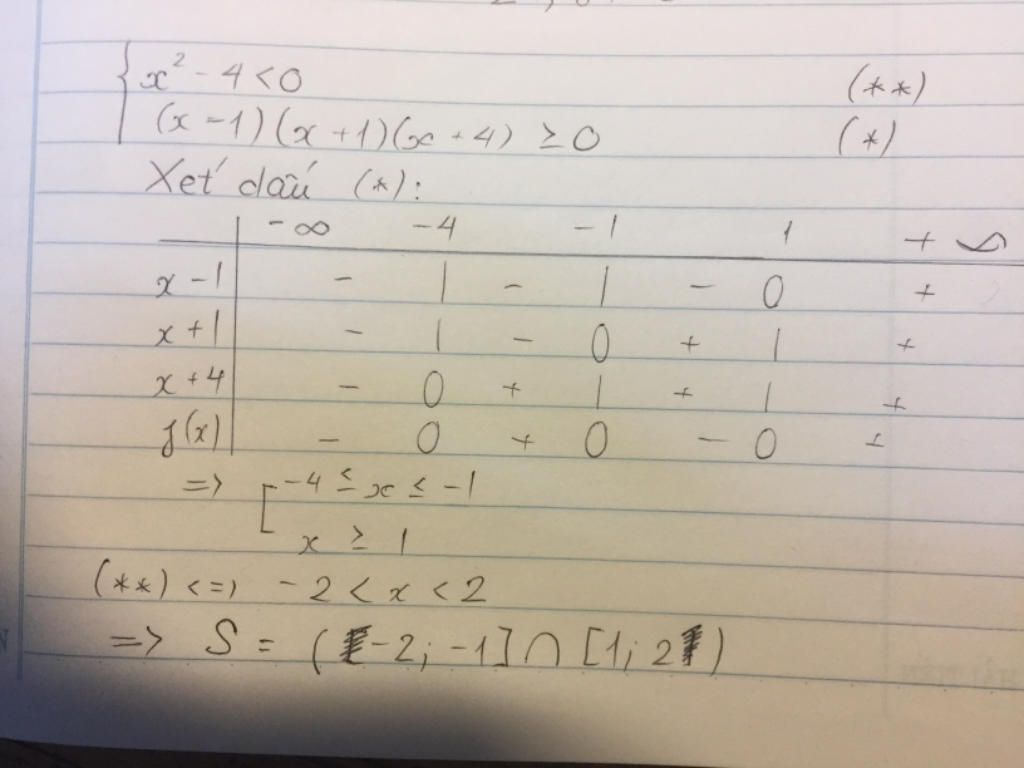 x² - 4 < 0 (**)
(x - 1)(x + 1)(x + 4) ≥ 0 (*)
Xét dấu (*):
-∞ -4 -1 1 +∞
x - 1 - | - | - 0 +
x + 1 - | - 0 + | +
x + 4 - 0 + | + | +
f(x) - 0 + 0 - 0 +
=> [ -4 ≤ x ≤ -1
x ≥ 1
(**) <=> -2 < x < 2
=> S = (-2; -1] ∩ [1; 2)